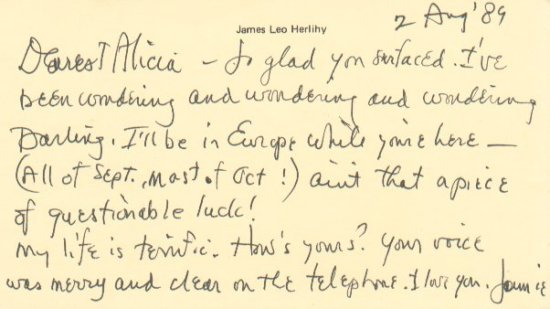 James Leo Herlihy
2 Aug '89
Dearest Alicia – So glad you surfaced. I've
been wondering and wondering and wondering
Darling, I'll be in Europe while you're here —
(All of Sept., most of Oct!) ain't that a piece
of questionable luck!
My life is terrific. How's yours? Your voice
was merry and clear on the telephone. I love you. Jamie